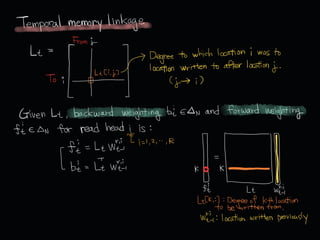 Temporal memory linkage
From j
L_t =
To i
L_t[i,j]
Degree to which location i was to
location written to after location j..
(j → i)
Given L_t, backward weighting b_t^i ∈ Δ_N and forward weighting
f_t^i ∈ Δ_N for read head i is:
i=1,2,…,R
f_t^i = L_t w_{t-1}^{r,i}
b_t^i = L_t^T w_{t-1}^{r,i}
K
=
K
f_t
L_t
w_{t-1}^{r,i}
L_t[k,:] : Degree of kth location
to be written from,
w_{t-1}^{r,i} : location written previously